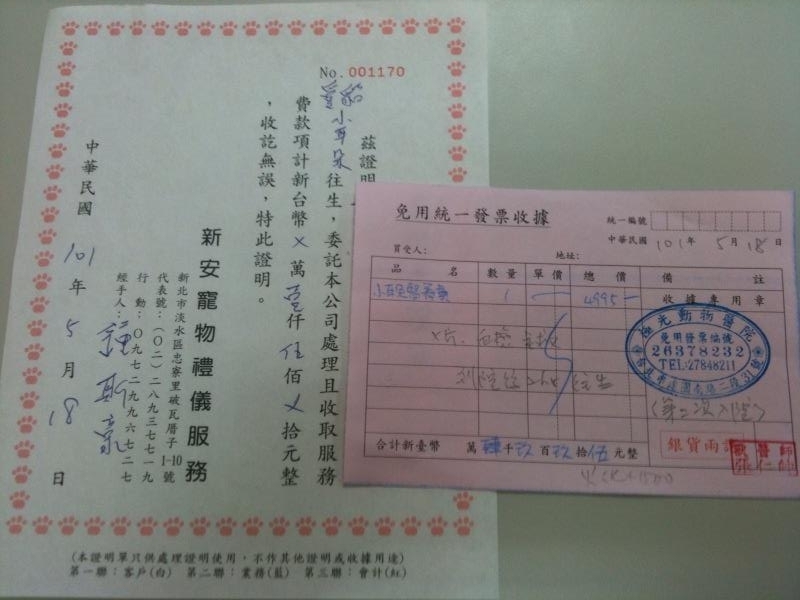 No. 001170
茲證明
小耳朵往生，委託本公司處理且收取服務
費款項計新台幣ㄨ萬壹仟伍佰ㄨ拾元整
，收訖無誤，特此證明。
新安寵物禮儀服務
新北市淡水區忠寮里破瓦厝子1-10號
代表號：(〇二)二八九三七七一九
行動：〇九七二九九六七二七
經手人：鍾斯豪
中華民國101年5月18日
(本證明單只供處理證明使用，不作其他證明或收據用途)
第一聯：客戶(白) 第二聯：業務(藍) 第三聯：會計(紅)
免用統一發票收據
統一編號
中華民國101年5月18日
買受人：
地址：
品名 數量 單價 總價 備註
小耳朵醫療費 1 4995
收據專用章
極光動物醫院
免用發票編號
26378232
TEL:27848211
(第二次入院)
合計新臺幣 萬肆千玖百玖拾伍元整
銀貨兩訖
獸醫師